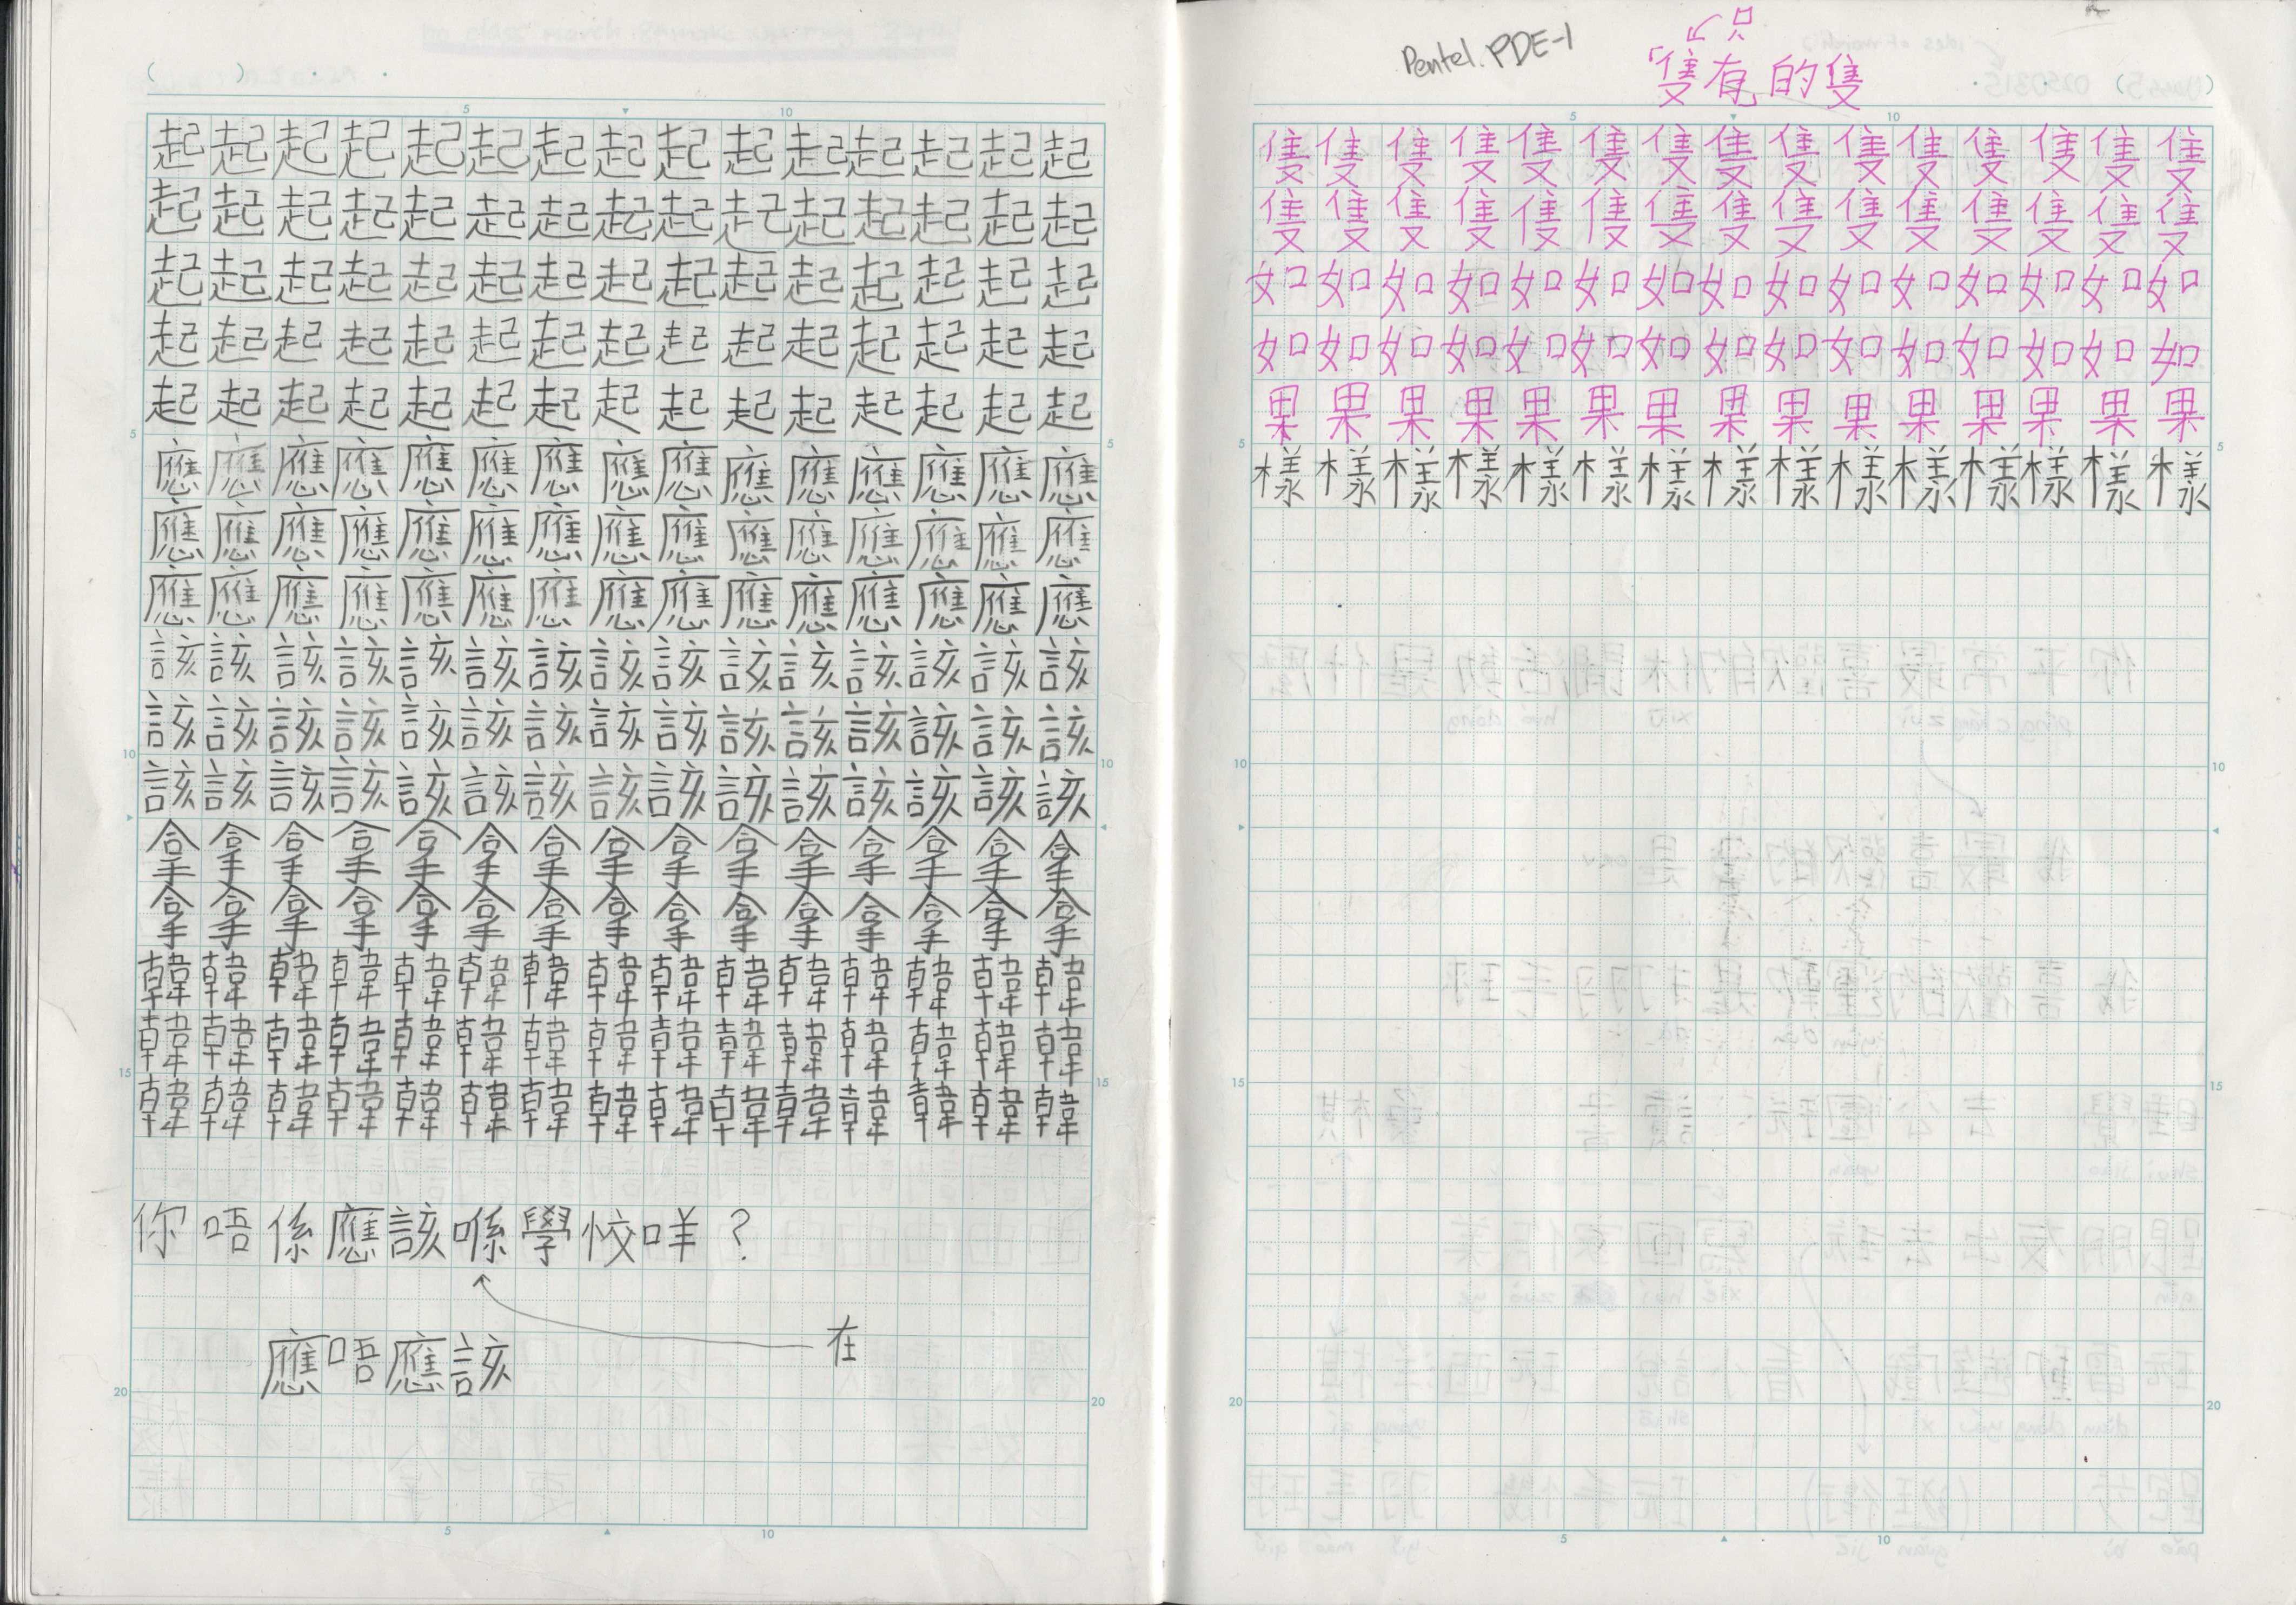 ( )
5 10
起起起起起起起起起起起起起起起
起起起起起起起起起起起起起起起
起起起起起起起起起起起起起起起
起起起起起起起起起起起起起起起
起起起起起起起起起起起起起起起
5 5
應應應應應應應應應應應應應應應
應應應應應應應應應應應應應應應
應應應應應應應應應應應應應應應
該該該該該該該該該該該該該該該
該該該該該該該該該該該該該該該
10 10
該該該該該該該該該該該該該該該
拿拿拿拿拿拿拿拿拿拿拿拿拿拿拿
拿拿拿拿拿拿拿拿拿拿拿拿拿拿拿
韓韓韓韓韓韓韓韓韓韓韓韓韓韓韓
韓韓韓韓韓韓韓韓韓韓韓韓韓韓韓
15 15
韓韓韓韓韓韓韓韓韓韓韓韓韓韓韓
你唔係應該喺學恔咩？
在
應唔應該
20 20
5 10
Pentel. PDE-1
只
「隻有的隻
( )
5 10
隻隻隻隻隻隻隻隻隻隻隻隻隻隻隻
隻隻隻隻隻隻隻隻隻隻隻隻隻隻隻
如如如如如如如如如如如如如如如
如如如如如如如如如如如如如如如
果果果果果果果果果果果果果果果
5 5
樣樣樣樣樣樣樣樣樣樣樣樣樣樣樣
10 10
15 15
20 20
5 10